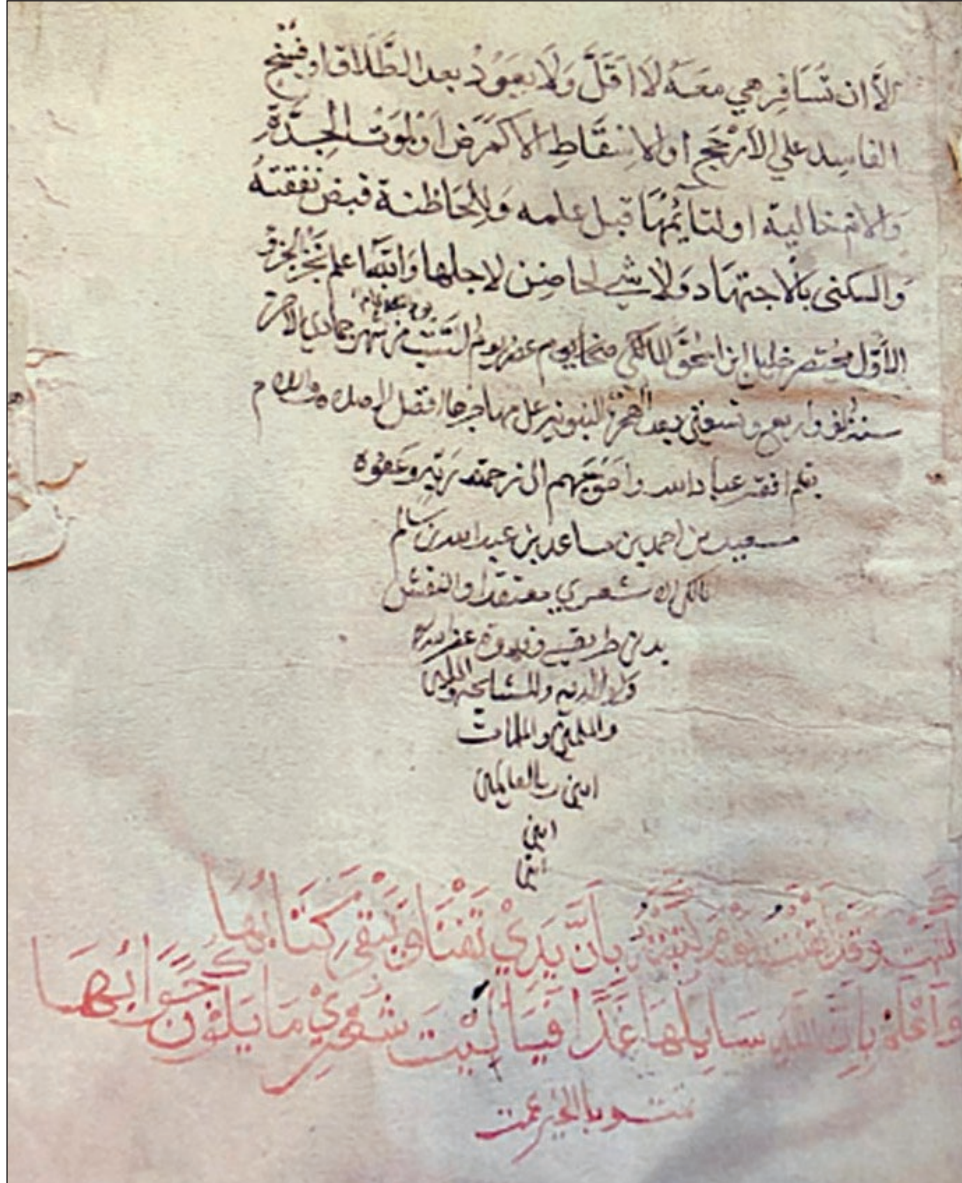 لا ان تسافر هي معه لا اقل ولا يعود بعد الطلاق او فسخ
الفاسد على الارجح او الاسقاط الا كمرض او لموت الجدة
والام خالية او لتايمها قبل علمه ولا لحاظنة قبض نفقته
والسكنى بالاجتهاد ولا شي لحاضن لاجلها والله اعلم تم الجزو
الاول مختصر خليل ابن اسحق المالكي ضحا يوم السبت من شهر جمادي الاخر
سنة الف واربع وتسعين بعد الهجرة النبويه على مهاجرها افضل الصلاه والسلام
بقلم افقر عباد الله واحوجهم الى رحمة ربه وعفوه
سعيد بن احمد بن ساعد بن عبد الله بن سالم
مالكي الاشعري معتقدا والنقش
بدني طريقة غفر الله
ولوالديه وللمشايخه
والمسلمين والمسلمات
امين رب العالمين
امين
امين
كتبت وقد ايقنت يوم كتبتها بان يدي تفنا ويبقى كتابها
واعلم بان الله سايلها غدا فيا ليت شعري ما يكون جوابها
تمت وبا الخير عمت